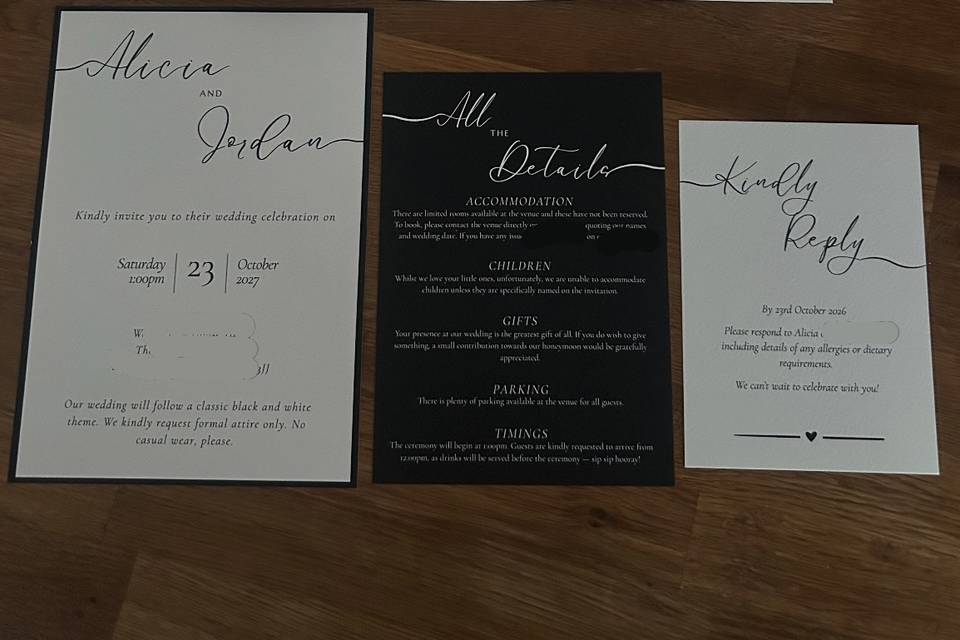 Alicia
AND
Jordan
Kindly invite you to their wedding celebration on
Saturday
1:00pm
23
October
2027
W.
Th.
3JJ
Our wedding will follow a classic black and white
theme. We kindly request formal attire only. No
casual wear, please.
All
THE
Details
ACCOMMODATION
There are limited rooms available at the venue and these have not been reserved.
To book, please contact the venue directly quoting our names
and wedding date. If you have any on
CHILDREN
Whilst we love your little ones, unfortunately, we are unable to accommodate
children unless they are specifically named on the invitation.
GIFTS
Your presence at our wedding is the greatest gift of all. If you do wish to give
something, a small contribution towards our honeymoon would be gratefully
appreciated.
PARKING
There is plenty of parking available at the venue for all guests.
TIMINGS
The ceremony will begin at 1:00pm. Guests are kindly requested to arrive from
12:00pm, as drinks will be served before the ceremony — sip sip hooray!
Kindly
Reply
By 23rd October 2026
Please respond to Alicia
including details of any allergies or dietary
requirements.
We can't wait to celebrate with you!